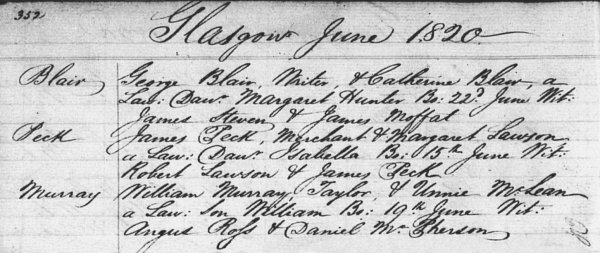 352
Glasgow June 1820
Blair George Blair, Writer, & Catherine Blaw, a
Law: Dawr. Margaret Hunter Bo: 22d. June Wit:
James Steven & James Moffat
Peck James Peck, Merchant & Margaret Lawson
a Law: Dawr. Isabella Bo: 15th June Wit:
Robert Lawson & James Peck
Murray William Murray, Taylor, & Unnie McLean
a Law: Son William Bo: 19th June Wit:
Angus Ross & Daniel McPherson